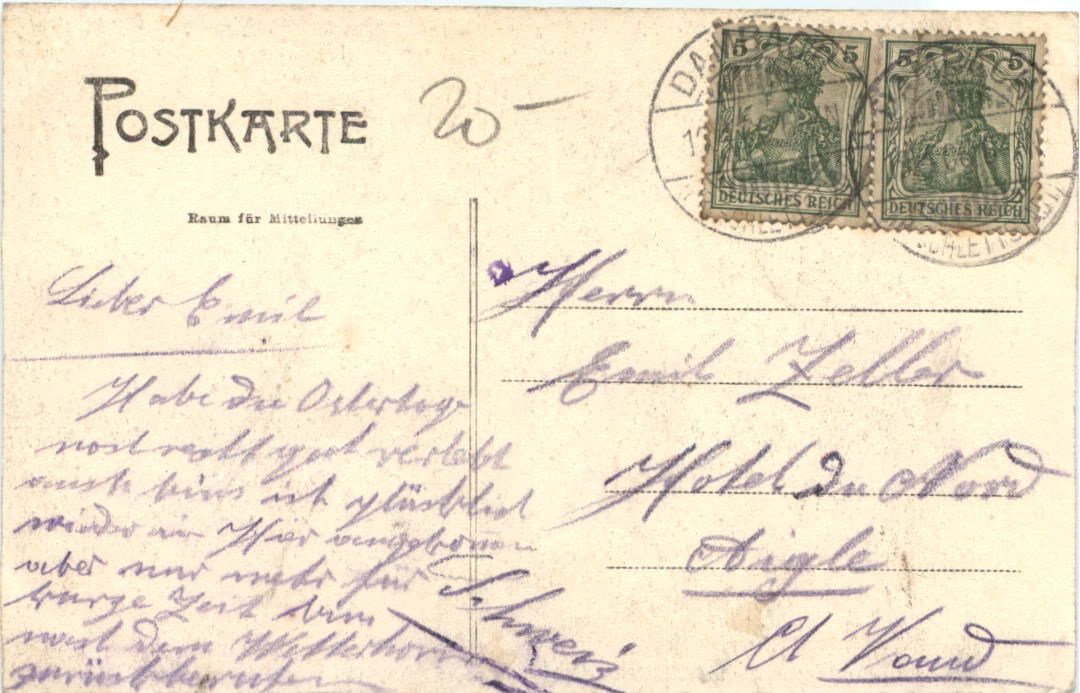 POSTKARTE
20-
Raum für Mitteilungen
5 5
5 5
DEUTSCHES REICH
DEUTSCHES REICH
DAMBACH
Lieber Emil
Habe die Ostertage
noch recht gut verlebt
auch bin ich glücklich
wieder in Hier angekommen
aber nur mehr für
kurze Zeit bin
nach dem Wetterhorn
zurückberufen
Herrn
Emil Zeller
Hotel du Nord
Aigle
Ct Vaud
Schweiz